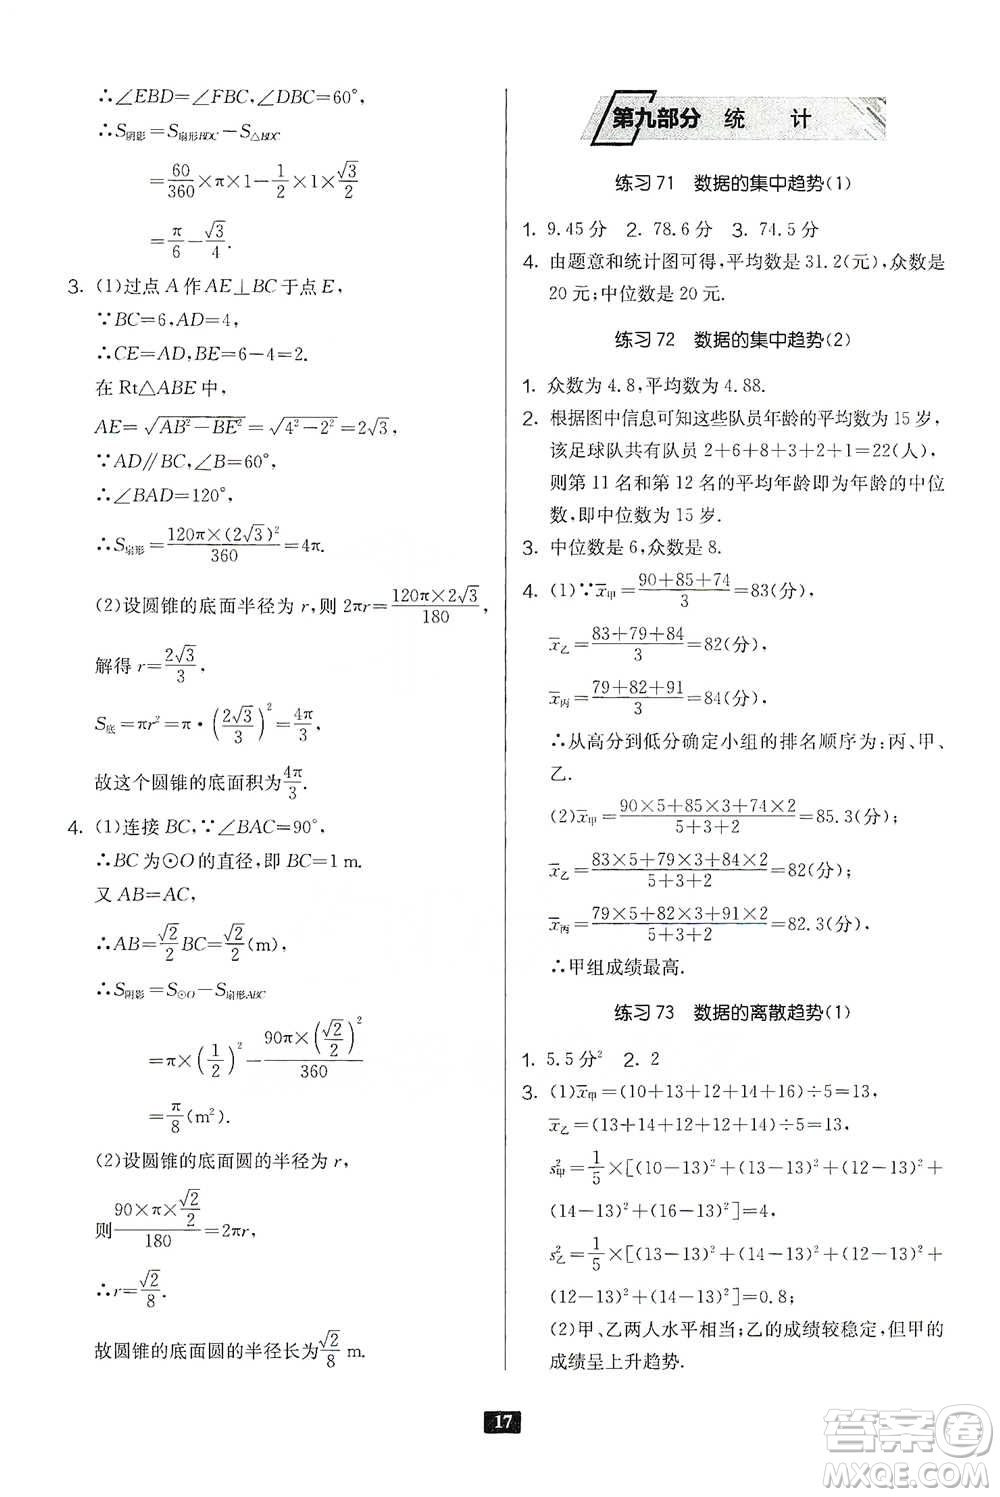 ∴∠EBD=∠FBC,∠DBC=60°,
∴S阴影=S扇形BDC−S△BDC
=60/360×π×1−1/2×1×√3/2
=π/6−√3/4.
3. (1)过点 A 作 AE⊥BC 于点 E,
∵BC=6,AD=4,
∴CE=AD,BE=6−4=2.
在 Rt△ABE 中,
AE=√(AB²−BE²)=√(4²−2²)=2√3.
∵AD∥BC,∠B=60°,
∴∠BAD=120°,
∴S扇形=120π×(2√3)²/360=4π.
(2)设圆锥的底面半径为 r,则 2πr=120π×2√3/180,
解得 r=2√3/3,
S底=πr²=π·(2√3/3)²=4π/3,
故这个圆锥的底面积为4π/3.
4. (1)连接 BC,∵∠BAC=90°,
∴BC 为⊙O 的直径,即 BC=1 m.
又 AB=AC,
∴AB=√2/2BC=√2/2(m),
∴S阴影=S⊙O−S扇形ABC
=π×(1/2)²−90π×(√2/2)²/360
=π/8(m²).
(2)设圆锥的底面圆的半径为 r,
则90×π×√2/2/180=2πr,
∴r=√2/8.
故圆锥的底面圆的半径长为√2/8 m.
第九部分 统 计
练习 71 数据的集中趋势(1)
1. 9.45 分 2. 78.6 分 3. 74.5 分
4. 由题意和统计图可得,平均数是 31.2(元),众数是
20 元;中位数是 20 元.
练习 72 数据的集中趋势(2)
1. 众数为 4.8,平均数为 4.88.
2. 根据图中信息可知这些队员年龄的平均数为 15 岁,
该足球队共有队员 2+6+8+3+2+1=22(人),
则第 11 名和第 12 名的平均年龄即为年龄的中位
数,即中位数为 15 岁.
3. 中位数是 6,众数是 8.
4. (1)∵x̄甲=90+85+74/3=83(分),
x̄乙=83+79+84/3=82(分),
x̄丙=79+82+91/3=84(分),
∴从高分到低分确定小组的排名顺序为:丙、甲、
乙.
(2)x̄甲=90×5+85×3+74×2/5+3+2=85.3(分);
x̄乙=83×5+79×3+84×2/5+3+2=82(分);
x̄丙=79×5+82×3+91×2/5+3+2=82.3(分),
∴甲组成绩最高.
练习 73 数据的离散趋势(1)
1. 5.5 分² 2. 2
3. (1)x̄甲=(10+13+12+14+16)÷5=13,
x̄乙=(13+14+12+12+14)÷5=13,
s²甲=1/5×[(10−13)²+(13−13)²+(12−13)²+
(14−13)²+(16−13)²]=4,
s²乙=1/5×[(13−13)²+(14−13)²+(12−13)²+
(12−13)²+(14−13)²]=0.8;
(2)甲、乙两人水平相当;乙的成绩较稳定,但甲的
成绩呈上升趋势.
17
答案圈
MXQE.COM